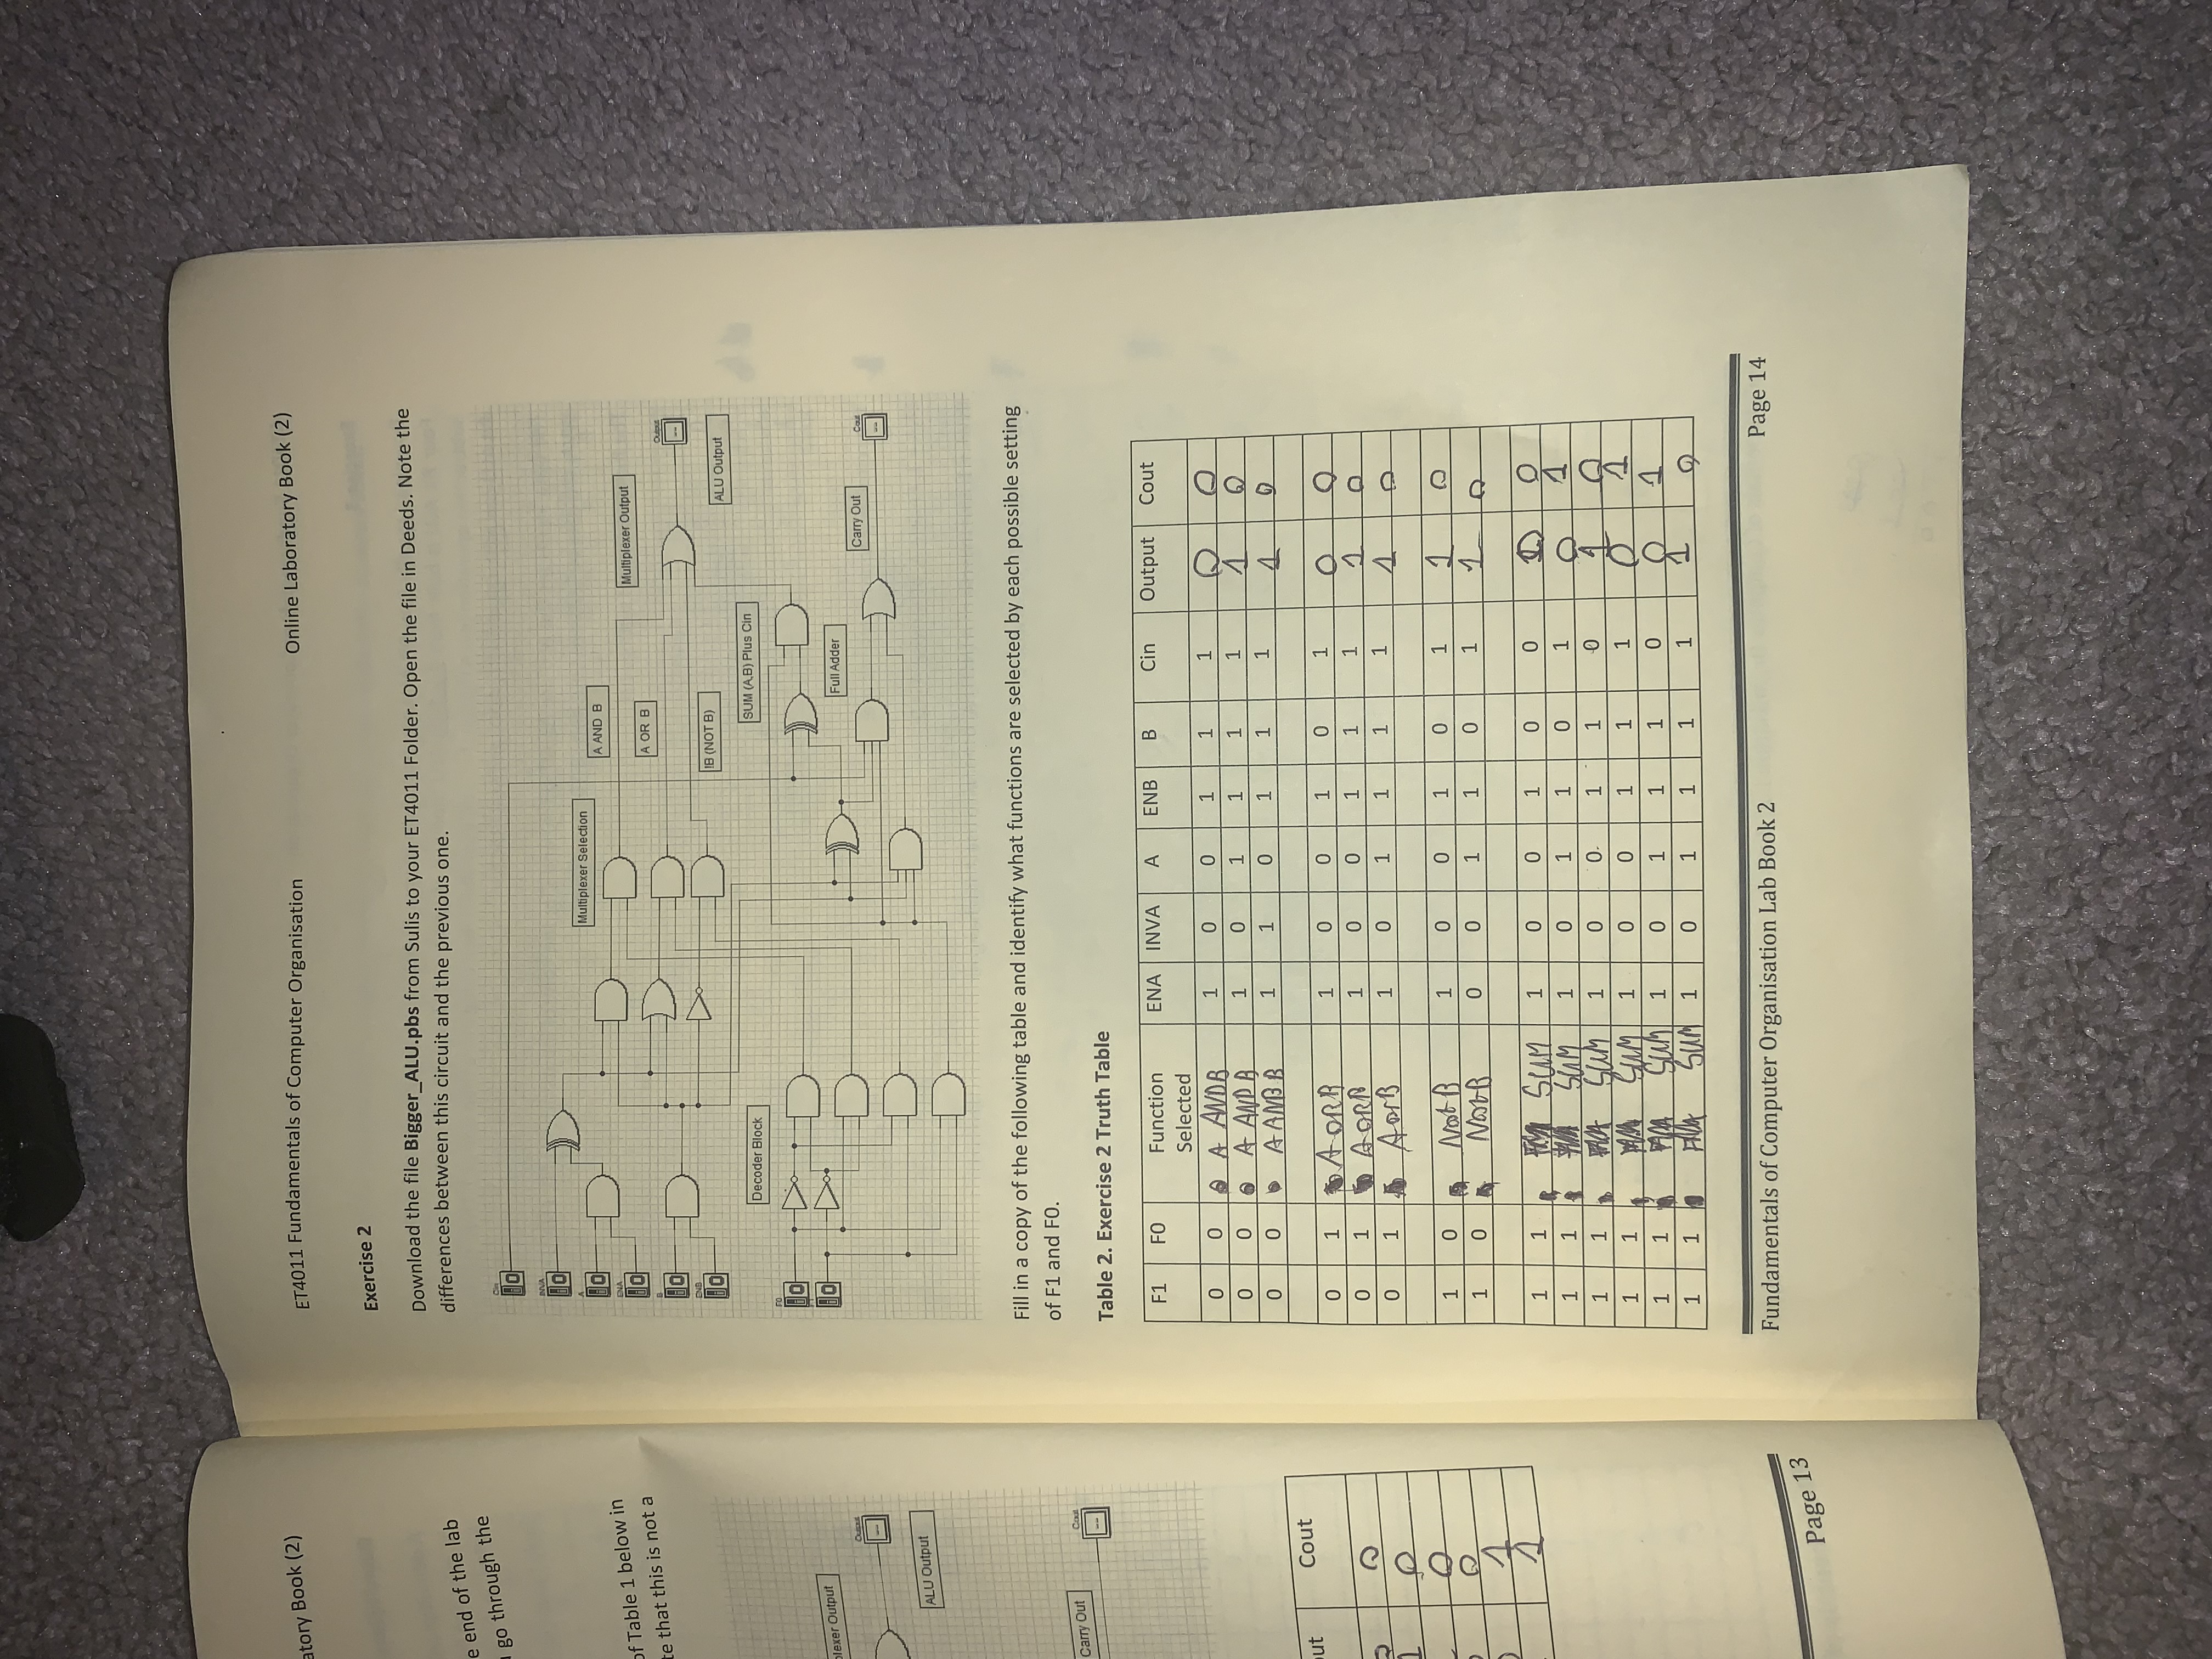 atory Book (2)
e end of the lab
go through the
of Table 1 below in
te that this is not a
plexer Output
Output
ALU Output
Carry Out
Cout
out Cout
0
1 0
0
0
1
1
Page 13
ET4011 Fundamentals of Computer Organisation Online Laboratory Book (2)
Exercise 2
Download the file Bigger_ALU.pbs from Sulis to your ET4011 Folder. Open the file in Deeds. Note the
differences between this circuit and the previous one.
Cin
0
INVA
0
A
0
ENA
0
B
0
ENB
0
Multiplexer Selection
A AND B
A OR B
Multiplexer Output
Output
--
!B (NOT B)
ALU Output
SUM (A,B) Plus Cin
Decoder Block
F0
0
0
Full Adder
Carry Out
Cout
--
Fill in a copy of the following table and identify what functions are selected by each possible setting
of F1 and F0.
Table 2. Exercise 2 Truth Table
F1 F0 Function Selected ENA INVA A ENB B Cin Output Cout
0 0 A ANDB 1 0 0 1 1 1 0 0
0 0 A AND B 1 0 1 1 1 1 1 0
0 0 A AND B 1 1 0 1 1 1 1 0
0 1 A ORB 1 0 0 1 0 1 0 0
0 1 A ORB 1 0 0 1 1 1 1 0
0 1 A orB 1 0 1 1 1 1 1 0
1 0 Not B 1 0 0 1 0 1 1 0
1 0 NotB 0 0 1 1 0 1 1 0
1 1 SUM 1 0 0 1 0 0 0 0
1 1 SUM 1 0 1 1 0 1 0 1
1 1 SUM 1 0 0. 1 1 0 1 0
1 1 SUM 1 0 0 1 1 1 0 1
1 1 SUM 1 0 1 1 1 0 0 1
1 1 SUM 1 0 1 1 1 1 1 0
Fundamentals of Computer Organisation Lab Book 2 Page 14